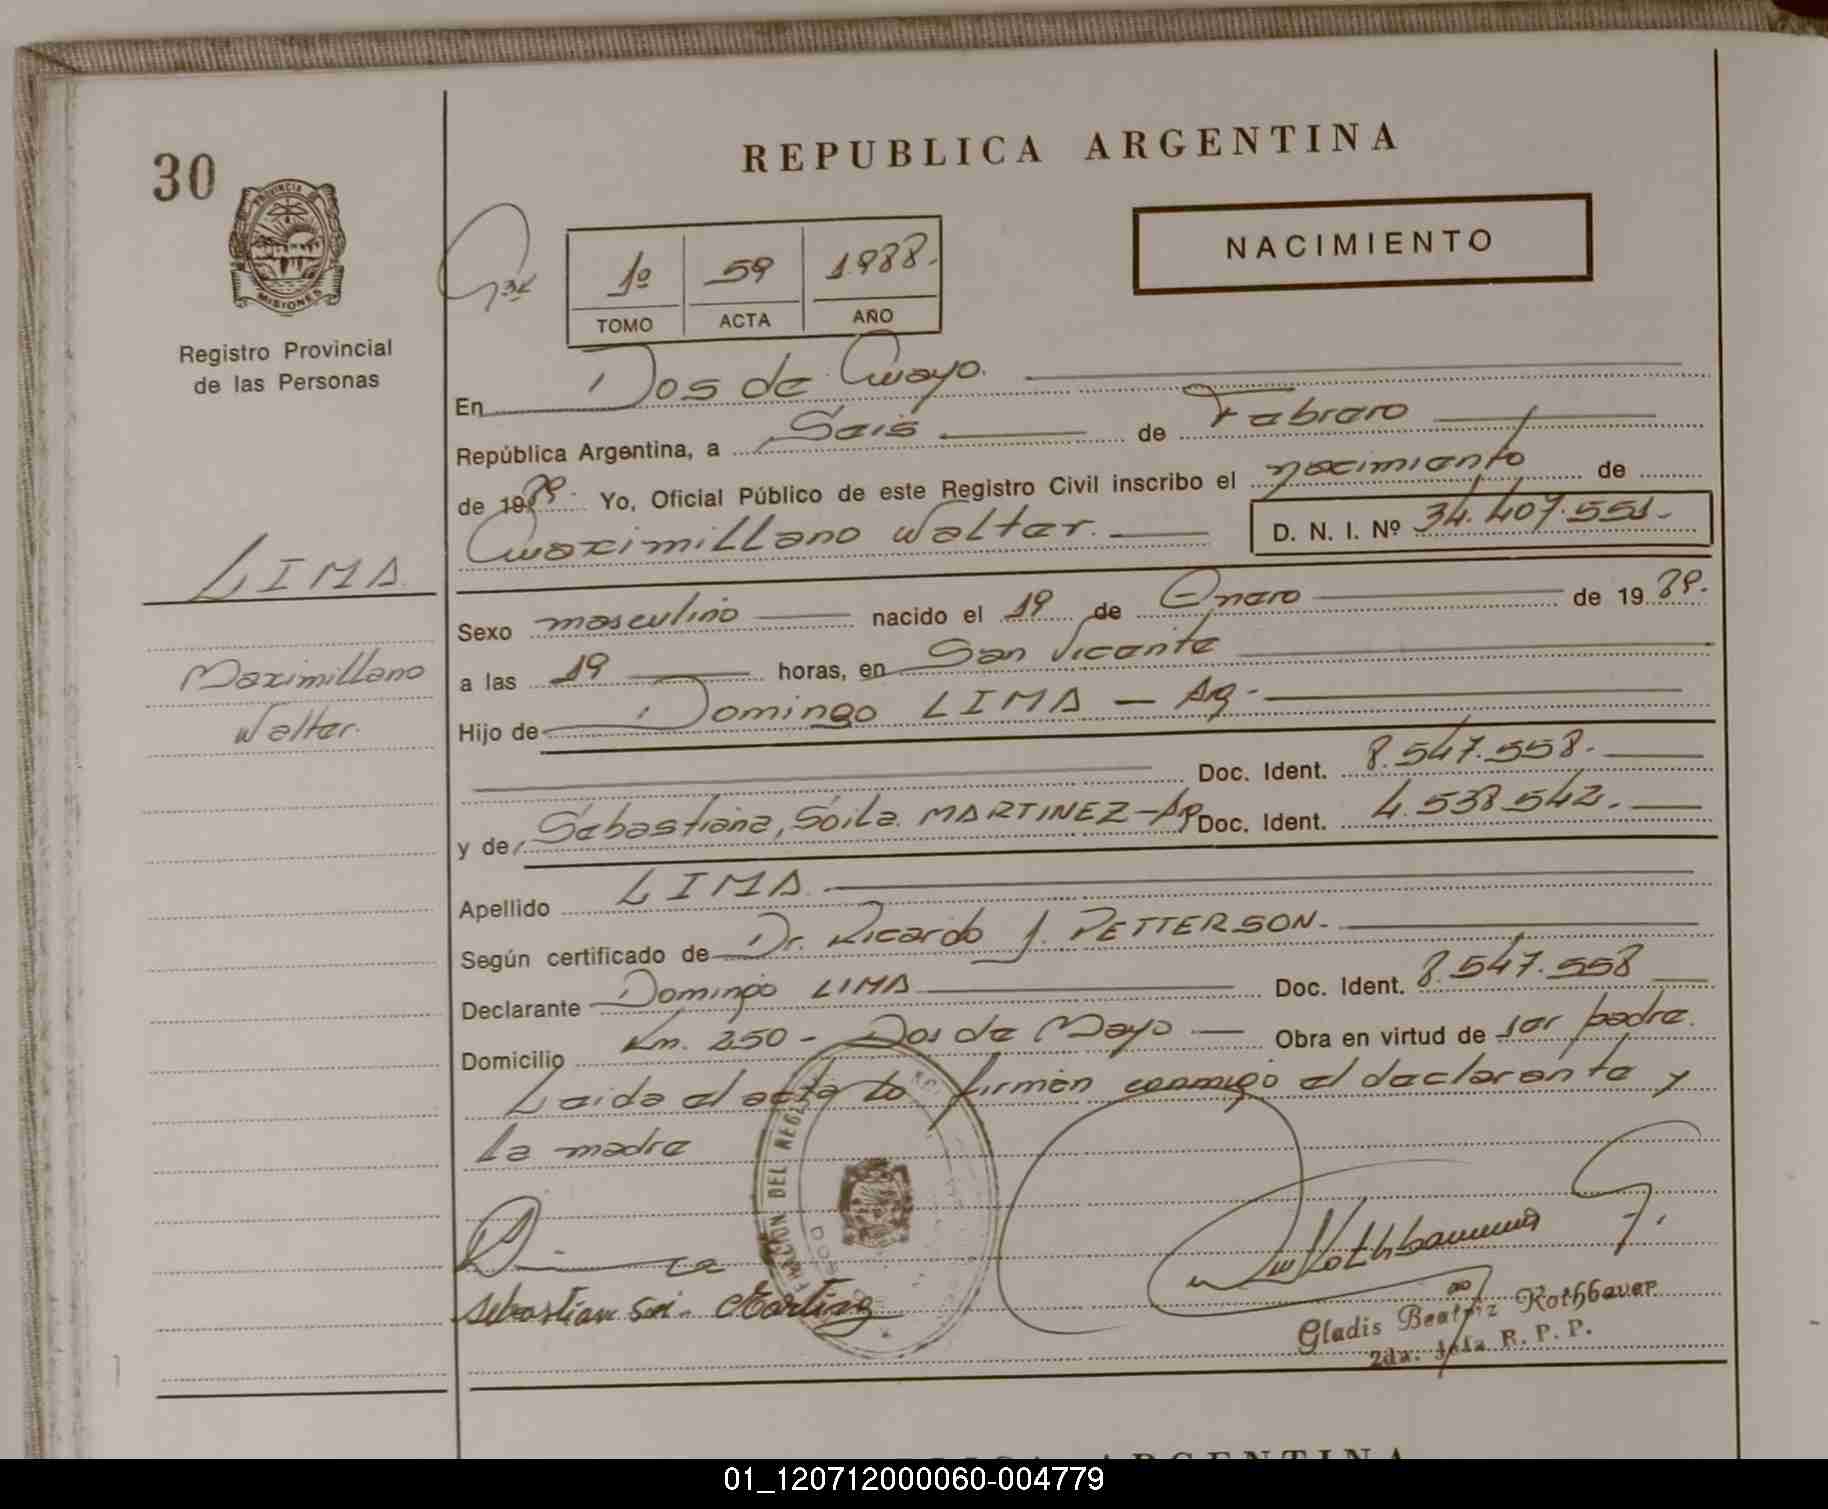 30
PROVINCIA DE
MISIONES
Registro Provincial
de las Personas
REPUBLICA ARGENTINA
NACIMIENTO
1º 59 1988.
TOMO ACTA AÑO
En Dos de Mayo.
República Argentina, a Seis de Febrero
de 1989. Yo, Oficial Público de este Registro Civil inscribo el nacimiento de
Maximillano Walter. D. N. I. Nº 34.407.551.-
LIMA
Maximillano
Walter.
Sexo masculino nacido el 19 de Enero de 1989.
a las 19 horas, en San Vicente
Hijo de Domingo LIMA — Ag.-
Doc. Ident. 8.547.558.-
y de Sebastiana, Soila MARTINEZ - Ag Doc. Ident. 4.538.542.-
Apellido LIMA
Según certificado de Dr. Ricardo J. PETTERSON.-
Declarante Domingo LIMA Doc. Ident. 8.547.558
Domicilio Km. 250 - Dos de Mayo Obra en virtud de ser padre.
Leida el acta lo firman conmigo el declarante y
la madre
Gladis Beatriz Rothbauer
2da. Jefa R. P. P.
01_120712000060-004779